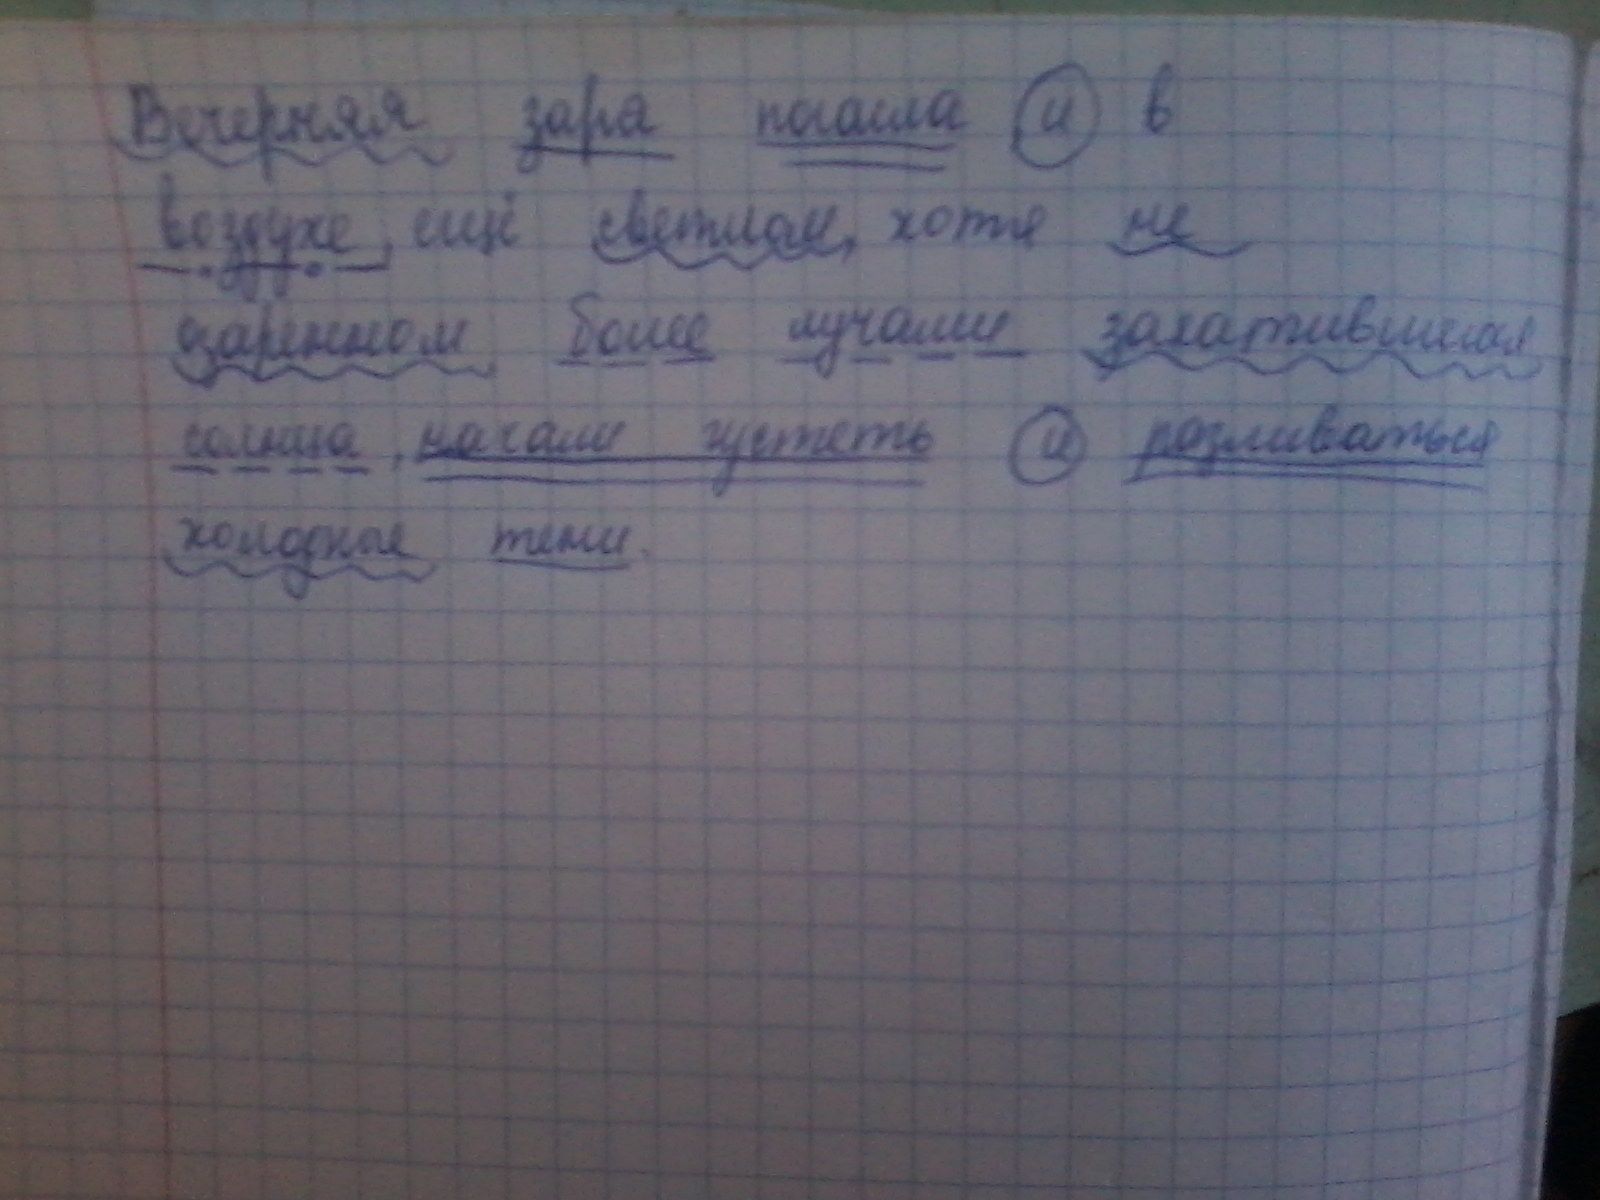 Вечерняя заря погасла и в
воздухе, ещё светлом, хотя не
озаренном более лучами закатившегося
солнца, начали густеть и разливаться
холодные тени.